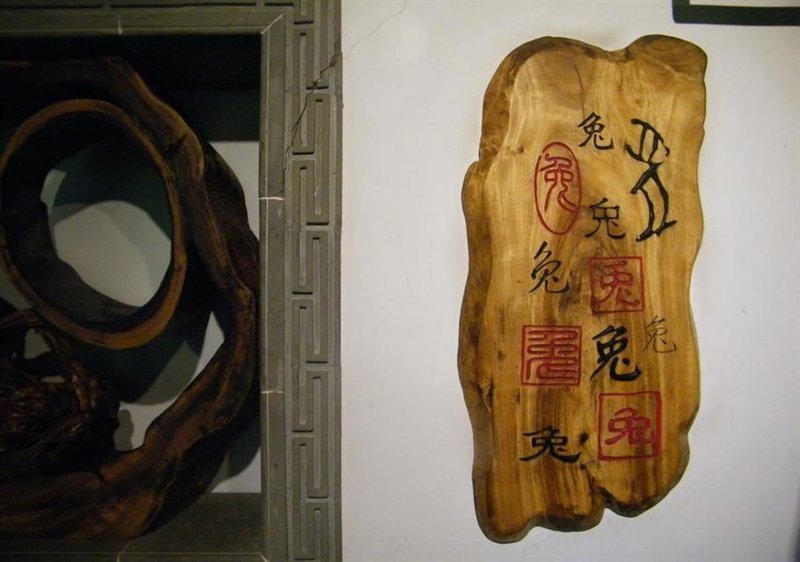 兔
兔
兔
兔
兔
兔
兔
兔
兔
兔